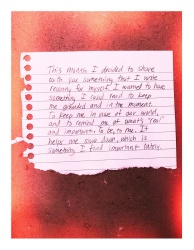 This month I decided to share
with you something that I wrote
recently for myself. I wanted to have
something I could read to keep
me grounded and in the moment.
To keep me in awe of our world,
and to remind me of what's real
and important. To be, to me. It
helps me slow down, which is
something I find important lately.